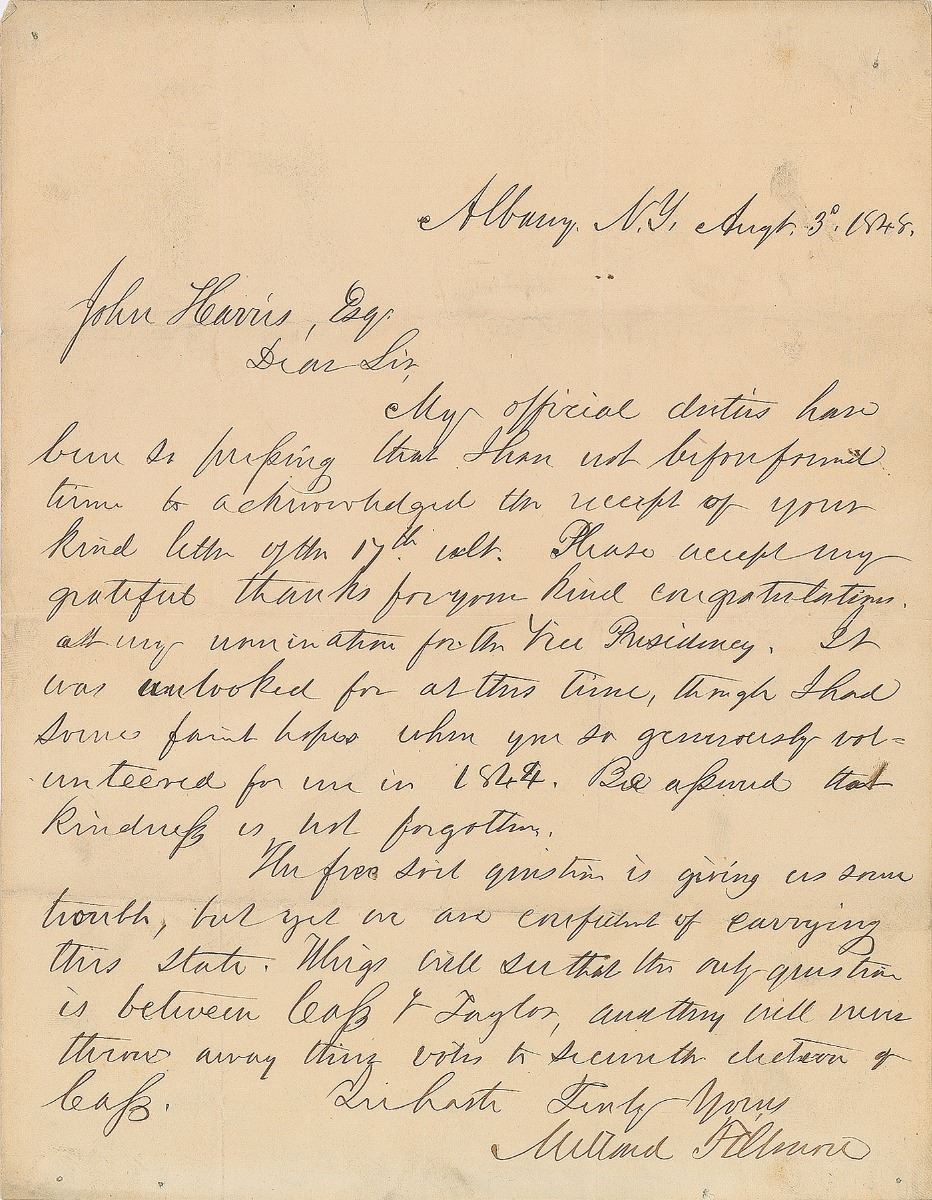 Albany. N.Y. Augt. 3d. 1848.
John Harris, Esqr
Dear Sir,
My official duties have
been so preſsing that I have not before found
time to acknowledged the receipt of your
kind letter of the 17th ult. Please accept my
grateful thanks for your kind congratulations.
att my nomination for the Vice Presidency. It
was unlooked for at this time, though I had
some faint hopes when you so generously vol=
unteered for me in 1844. Be aſsured that
kindneſs is not forgotten.
The free soil question is giving us some
trouble, but yet we are confident of carrying
this state. Whigs will see that the only question
is between Caſs & Taylor, and they will never
throw away their votes to secure the election of
Caſs. In haste Truly Yours
Millard Fillmore